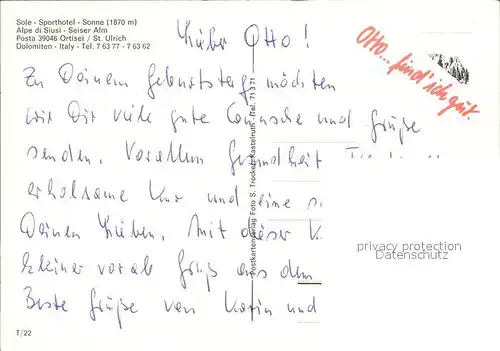 Sole - Sporthotel - Sonne (1870 m)
Alpe di Siusi - Seiser Alm
Posta 39046 Ortisei / St. Ulrich
Dolomiten - Italy - Tel. 7 63 77 - 7 63 62
Lieber Otto!
Otto... find' ich gut.
Zu Deinem Geburtstag möchten
wir Dir viele gute Wünsche und Grüße
senden. Vorallem Gesundheit
erholsame Kur und eine
Deinen Lieben. Mit dieser K
kleiner vorab Gruß aus dem
Beste Grüße von Karin und
Postkartenverlag Foto S. Trocker Kastelruth Tel. 71 3 71
privacy protection
Datenschutz
T/22